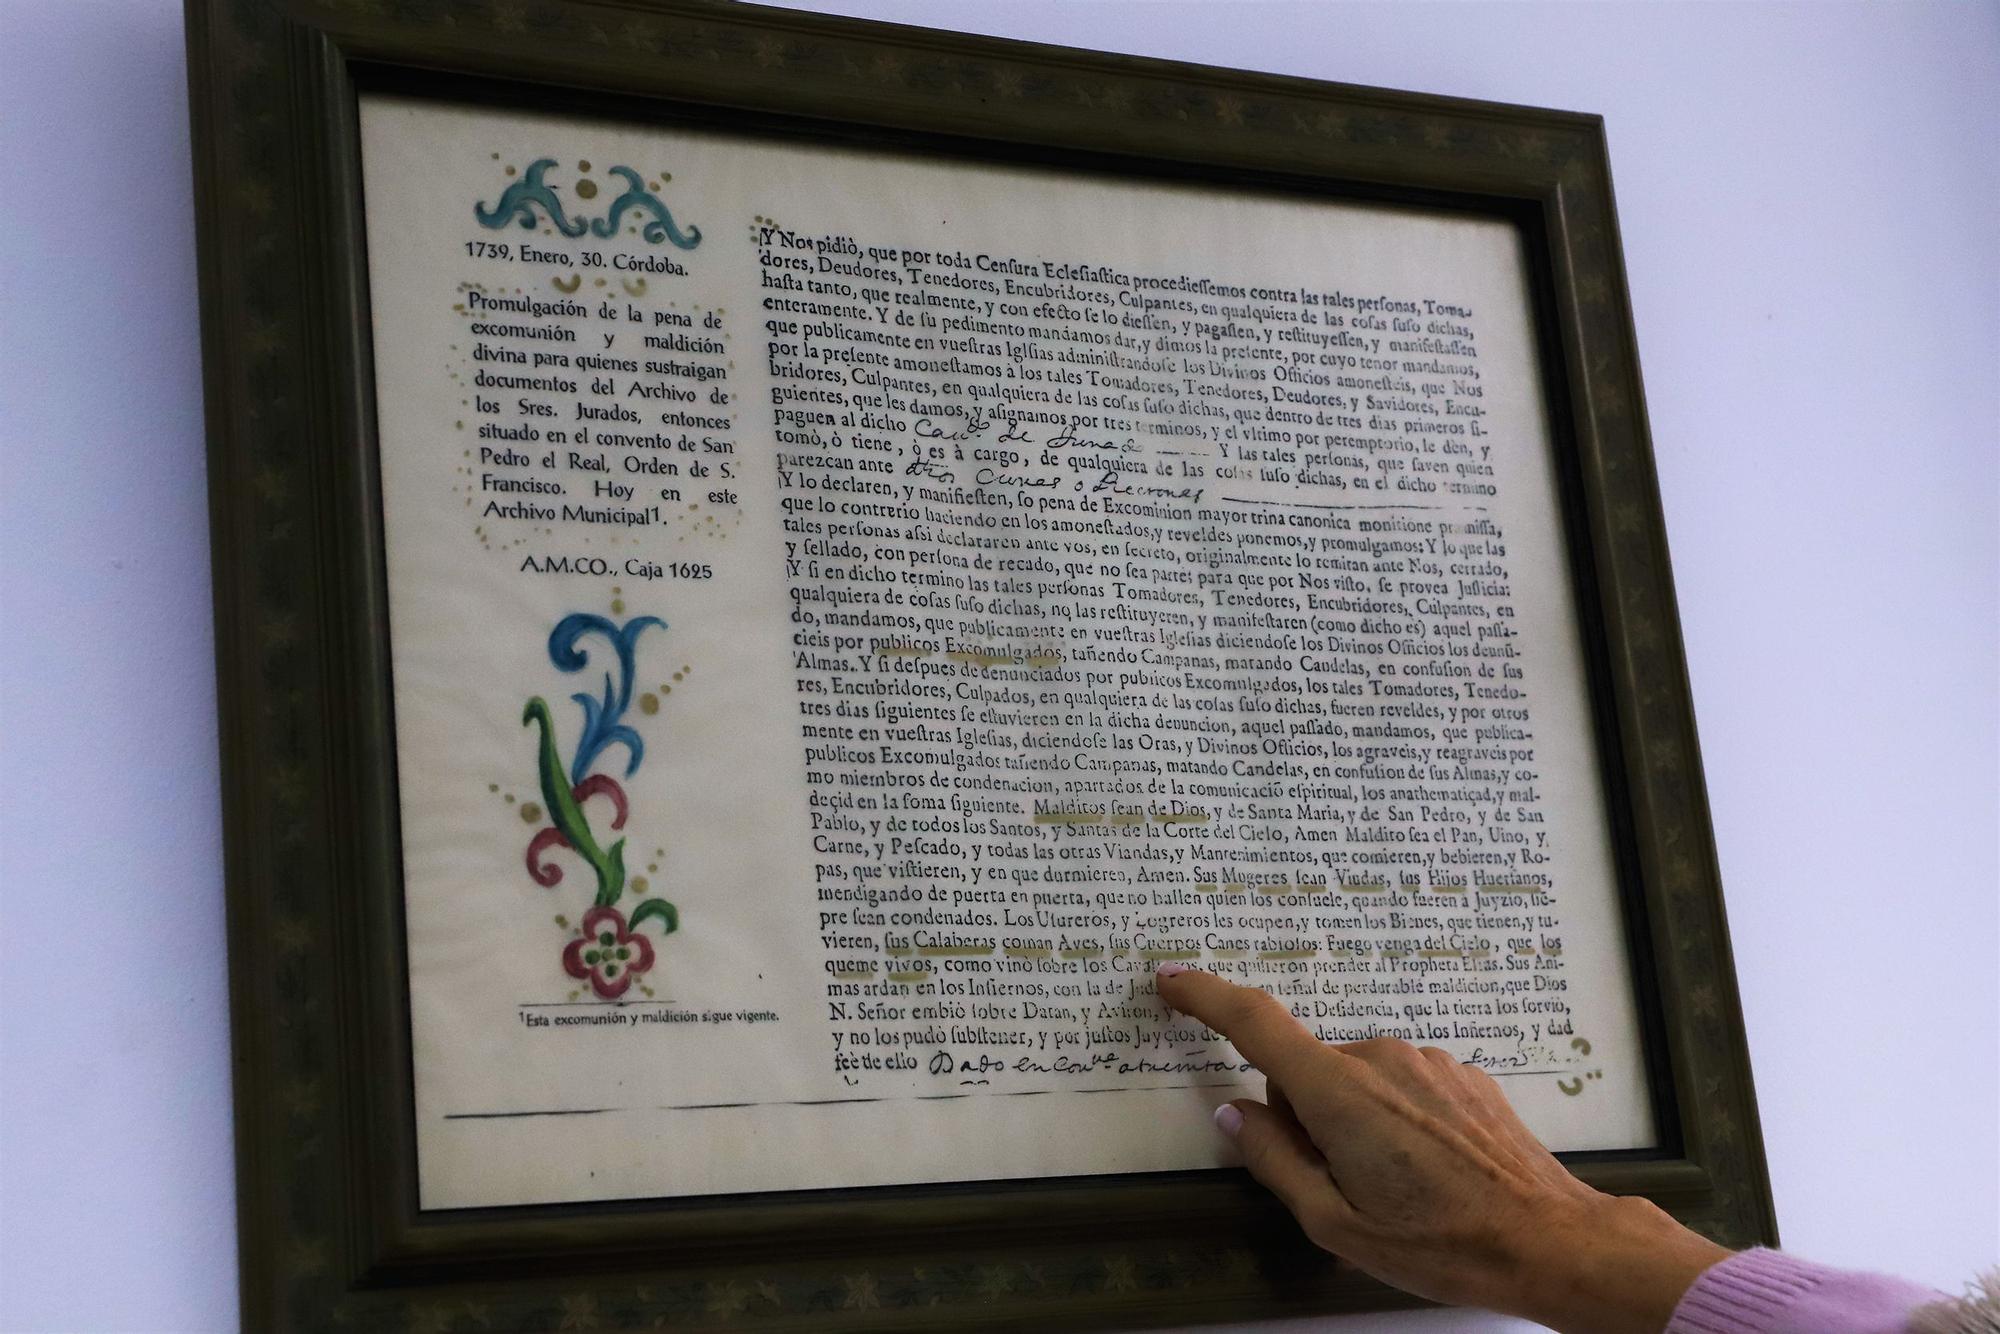 1739, Enero, 30. Córdoba.
Promulgación de la pena de
excomunión y maldición
divina para quienes sustraigan
documentos del Archivo de
los Sres. Jurados, entonces
situado en el convento de San
Pedro el Real, Orden de S.
Francisco. Hoy en este
Archivo Municipal¹.
A.M.CO., Caja 1625
¹Esta excomunión y maldición sigue vigente.
Y Nos pidiò, que por toda Cenſura Ecleſiaſtica procedieſſemos contra las tales perſonas, Toma-
dores, Deudores, Tenedores, Encubridores, Culpantes, en qualquiera de las coſas ſuſo dichas,
haſta tanto, que realmente, y con efecto ſe lo dieſſen, y pagaſſen, y reſtituyeſſen, y manifeſtaſſen
enteramente. Y de ſu pedimento mandamos dar, y dimos la preſente, por cuyo tenor mandamos,
que publicamente en vueſtras Igleſias adminiſtrandoſe los Divinos Officios amoneſteis, que Nos
por la preſente amoneſtamos à los tales Tomadores, Tenedores, Deudores, y Savidores, Encu-
bridores, Culpantes, en qualquiera de las coſas ſuſo dichas, que dentro de tres dias primeros ſi-
guientes, que les damos, y aſignamos por tres terminos, y el vltimo por peremptorio, le den, y
paguen al dicho de Y las tales perſonas, que ſaven quien
tomò, ò tiene, ò es à cargo, de qualquiera de las coſas ſuſo dichas, en el dicho termino
parezcan ante Curas o
Y lo declaren, y manifieſten, ſo pena de Excominion mayor trina canonica monitione premiſſa,
que lo contrerio haciendo en los amoneſtados, y reveldes ponemos, y promulgamos: Y lo que las
tales perſonas aſsi declararen ante vos, en ſecreto, originalmente lo remitan ante Nos, cerrado,
y ſellado, con perſona de recado, que no ſea parte; para que por Nos viſto, ſe provea Juſticia:
Y ſi en dicho termino las tales perſonas Tomadores, Tenedores, Encubridores, Culpantes, en
qualquiera de coſas ſuſo dichas, no las reſtituyeren, y manifeſtaren (como dicho es) aquel paſſa-
do, mandamos, que publicamente en vueſtras Igleſias diciendoſe los Divinos Officios los denun-
cieis por publicos Excomulgados, tañendo Campanas, matando Candelas, en confuſion de ſus
Almas. Y ſi deſpues de denunciados por publicos Excomulgados, los tales Tomadores, Tenedo-
res, Encubridores, Culpados, en qualquiera de las coſas ſuſo dichas, fueren reveldes, y por otros
tres dias ſiguientes ſe eſtuvieren en la dicha denuncion, aquel paſſado, mandamos, que publica-
mente en vueſtras Igleſias, diciendoſe las Oras, y Divinos Officios, los agraveis, y reagraveis por
publicos Excomulgados tañendo Campanas, matando Candelas, en confuſion de ſus Almas, y co-
mo miembros de condenacion, apartados de la comunicaciõ eſpiritual, los anathematiçad, y mal-
deçid en la foma ſiguiente. Malditos ſean de Dios, y de Santa Maria, y de San Pedro, y de San
Pablo, y de todos los Santos, y Santas de la Corte del Cielo, Amen Maldito ſea el Pan, Uino, y
Carne, y Peſcado, y todas las otras Viandas, y Mantenimientos, que comieren, y bebieren, y Ro-
pas, que viſtieren, y en que durmieren, Amen. Sus Mugeres ſean Viudas, ſus Hijos Huerfanos,
mendigando de puerta en puerta, que no hallen quien los conſuele, quando fueren à Juyzio, ſiẽ-
pre ſean condenados. Los Uſureros, y Logreros les ocupen, y tomen los Bienes, que tienen, y tu-
vieren, ſus Calaberas coman Aves, ſus Cuerpos Canes rabioſos: Fuego venga del Cielo, que los
queme vivos, como vinò ſobre los que quiſieron prender al Propheta Elias. Sus Ani-
mas ardan en los Infiernos, con la de ſeñal de perdurable maldicion, que Dios
N. Señor embiò ſobre Datan, y Aviron, y de Deſidencia, que la tierra los ſorviò,
y no los pudò ſubſtener, y por juſtos Juyçios de deſcendieron à los Infiernos, y dad
feè de ello Dado en